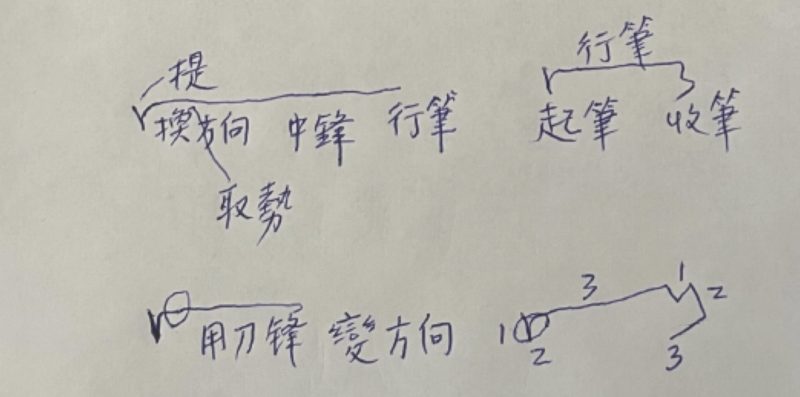 提 行筆
換方向 中鋒 行筆 起筆 收筆
取勢
3 1 2
用刀鋒 變方向 1 2 3